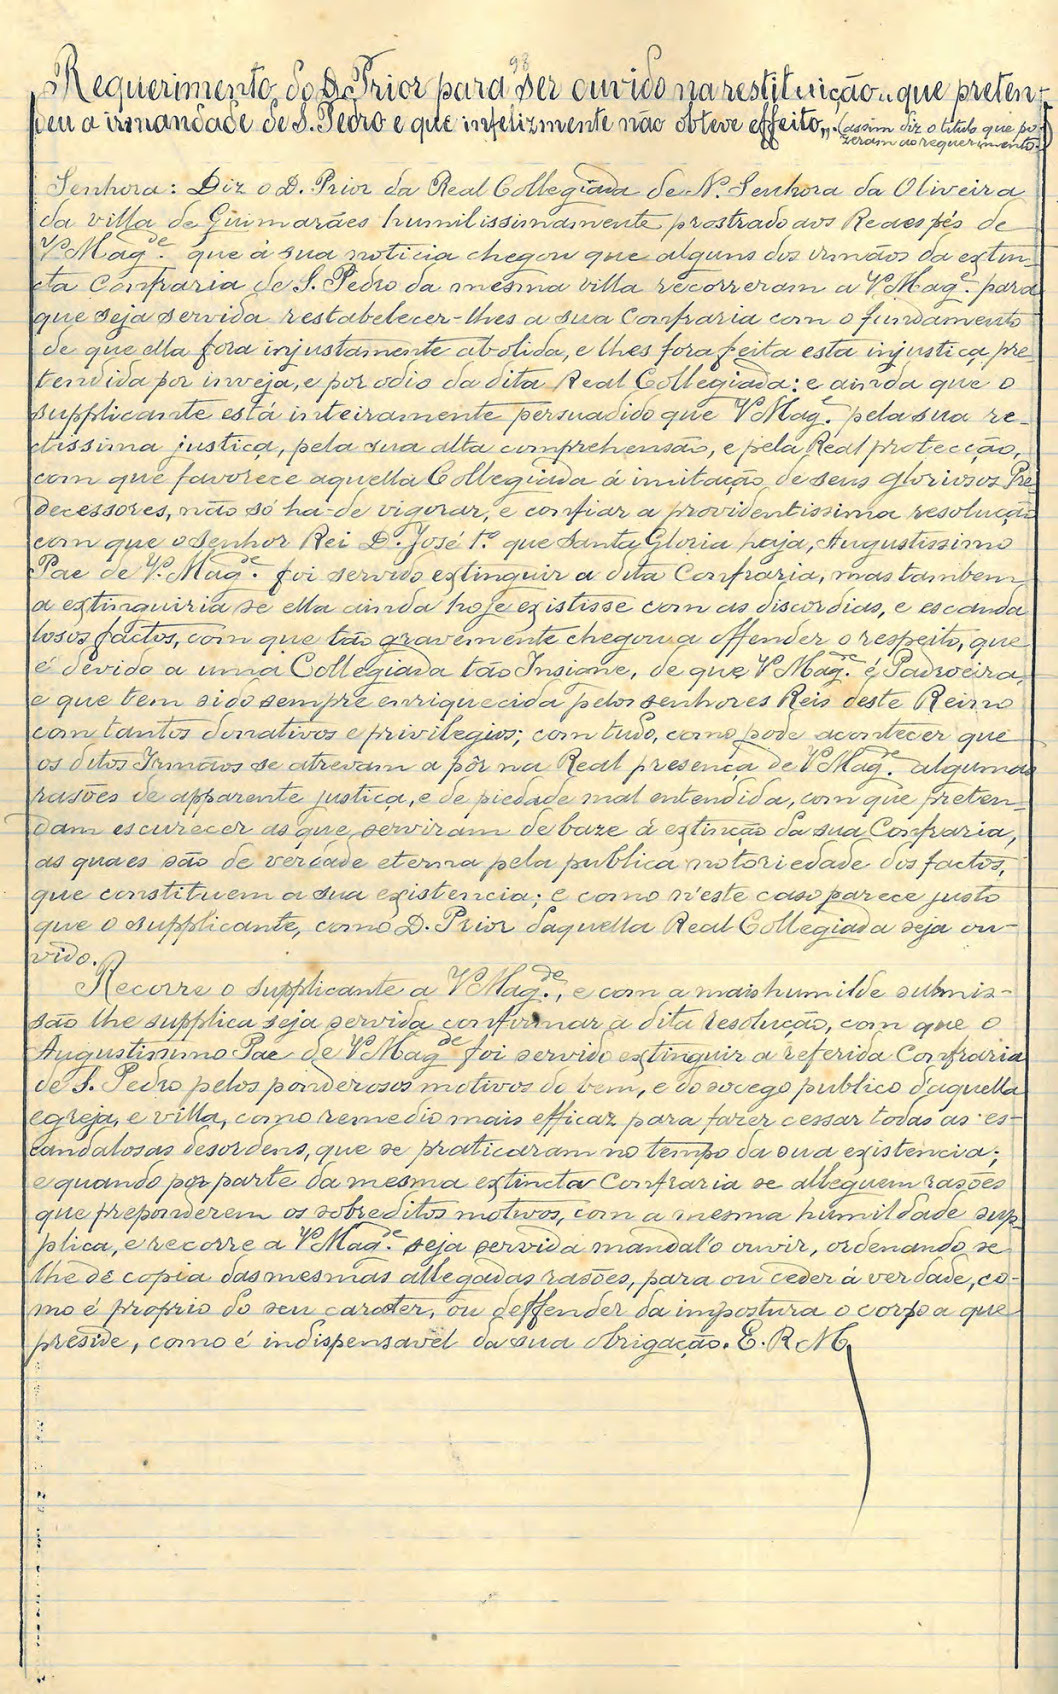 98
Requerimento do D. Prior para ser ouvido na restituição „ que preten-
deu a irmandade de S. Pedro e que infelizmente não obteve effeito „. (assim diz o titulo que po-
zeram ao requerimento.)
Senhora: Diz o D. Prior da Real Collegiada de N. Senhora da Oliveira
da villa de Guimarães humilissimamente prostrado aos Reaes pés de
V. Mag.de que á sua noticia chegou que alguns dos irmãos da extin-
cta Confraria de S. Pedro da mesma villa recorreram a V Mag.e para
que seja servida restabelecer-lhes a sua Confraria com o fundamento
de que ella fora injustamente abolida, e lhes fora feita esta injustiça pre
tendida por inveja, e por odio da dita Real Collegiada: e ainda que o
supplicante está inteiramente persuadido que V Mag.e pela sua re-
ctissima justiça, pela sua alta comprehensão, e pela Real protecção,
com que favorece aquella Collegiada á imitação de seus gloriosos Pre
decessores, não só ha-de vigorar, e confiar a providentissima resolução
com que o Senhor Rei D. José 1.º que Santa Gloria haja, Augustissimo
Pae de V. Mag.de foi servido extinguir a dita Confraria, mas tambem
a extinguiria se ella ainda hoje existisse com as discordias, e escanda
losos factos, com que tão gravemente chegou a offender o respeito, que
é devido a uma Collegiada tão Insigne, de que V Mag.de é Padroeira,
e que tem sido sempre enriquecida pelos senhores Reis deste Reino
com tantos donativos e privilegios; com tudo, como pode acontecer que
os ditos Irmãos se atrevam a pôr na Real presença de V Mag.de algumas
rasões de apparente justiça, e de piedade mal entendida, com que preten-
dam escurecer as que serviram de baze á extinção da sua Confraria,
as quaes são de verdade eterna pela publica notoriedade dos factos,
que constituem a sua existencia; e como n'este caso parece justo
que o supplicante, como D. Prior daquella Real Collegiada seja ou-
vido.
Recorre o supplicante a V Mag.de, e com a mais humilde submis-
são lhe supplica seja servida confirmar a dita resolução, com que o
Augustissimo Pae de V Mag.de foi servido extinguir a referida Confraria
de S. Pedro pelos ponderosos motivos do bem, e do socego publico d'aquella
egreja, e villa, como remedio mais efficaz para fazer cessar todas as es-
candalosas desordens, que se praticaram no tempo da sua existencia;
e quando por parte da mesma extincta Confraria se alleguem rasões
que preponderem os sobreditos motivos, com a mesma humildade sup-
plica, e recorre a V Mag.de seja servida mandal'o ouvir, ordenando se
lhe dê copia das mesmas allegadas rasões, para ou ceder á verdade, co-
mo é proprio do seu caracter, ou deffender da impostura o corpo a que
preside, como é indispensavel da sua obrigação. E. R M.